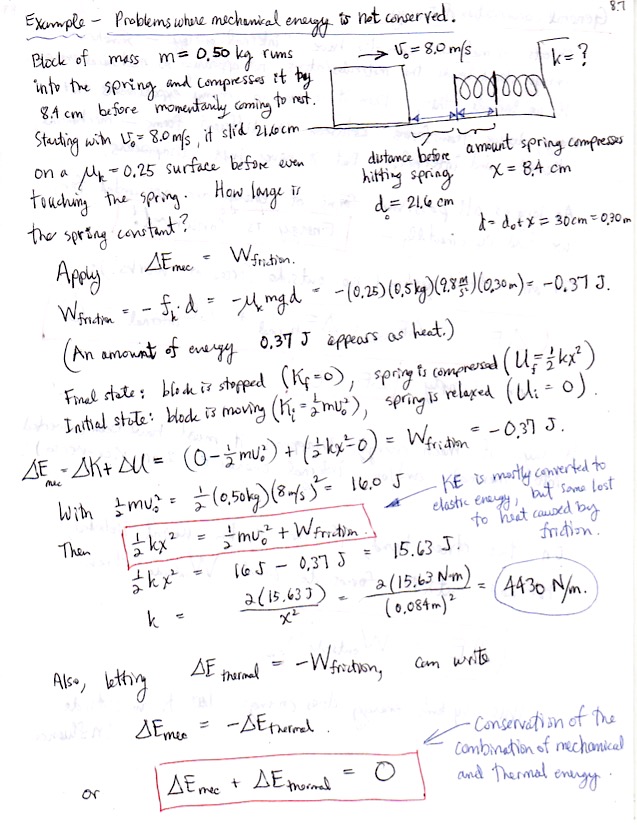 8.7
Example - Problems where mechanical energy is not conserved.
Block of mass m = 0.50 kg runs
into the spring and compresses it by
8.4 cm before momentarily coming to rest.
Starting with v₀ = 8.0 m/s, it slid 21.6 cm
on a μₖ = 0.25 surface before even
touching the spring. How large is
the spring constant?
→ v₀ = 8.0 m/s
k = ?
distance before
hitting spring
d₀ = 21.6 cm
amount spring compresses
x = 8.4 cm
d = d₀ + x = 30 cm = 0.30 m
Apply ΔE mec = W friction.
W friction = - fₖ · d = -μₖ mgd = -(0.25)(0.5 kg)(9.8 m/s²)(0.30 m) = -0.37 J.
(An amount of energy 0.37 J appears as heat.)
Final state: block is stopped (K_f = 0), spring is compressed (U_f = ½kx²)
Initial state: block is moving (K_i = ½mv₀²), spring is relaxed (U_i = 0).
ΔE mec = ΔK + ΔU = (0 - ½mv₀²) + (½kx² - 0) = W friction = -0.37 J.
With ½mv₀² = ½(0.50 kg)(8 m/s)² = 16.0 J
KE is mostly converted to
elastic energy, but some lost
to heat caused by
friction.
Then ½kx² = ½mv₀² + W friction.
½kx² = 16 J - 0.37 J = 15.63 J.
k = 2(15.63 J)/x² = 2(15.63 N·m)/(0.084 m)² = 4430 N/m.
Also, letting ΔE thermal = -W friction, can write
ΔE mec = -ΔE thermal.
or ΔE mec + ΔE thermal = 0
Conservation of the
combination of mechanical
and thermal energy.